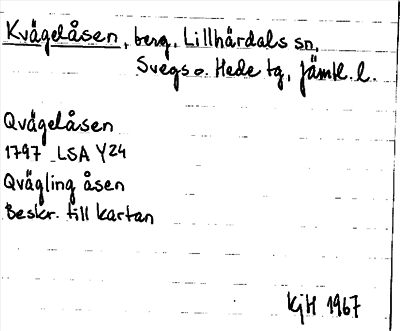 Kvägelåsen, berg. Lillhärdals sn,
Svegs o. Hede tg, Jämtl. l.
Qvägelåsen
1797 LSA Y24
Qvägling åsen
Beskr. till kartan
KjH 1967